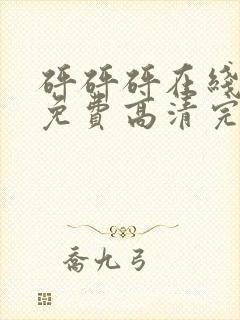 砰砰砰在线
免费高清完
乔九弓